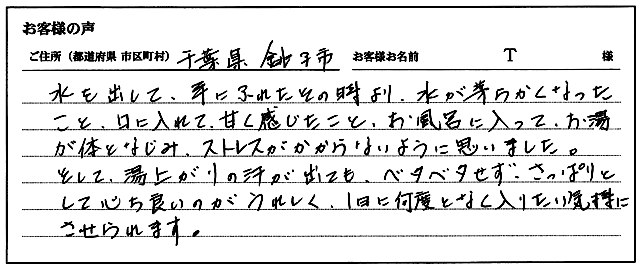 お客様の声
ご住所（都道府県 市区町村） 千葉県 銚子市 お客様お名前 T 様
水を出して、手にふれたその時より、水が芽らかくなった
こと、口に入れて、甘く感じたこと、お風呂に入って、お湯
が体となじみ、ストレスがかからないように思いました。
そして、湯上がりの汗が出ても、ベタベタせず、さっぱりと
して心ち良いのがうれしく、1日に何度となく入りたい気持に
させられます。